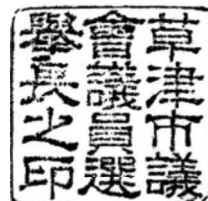 草津市議
會議員選
舉長之印